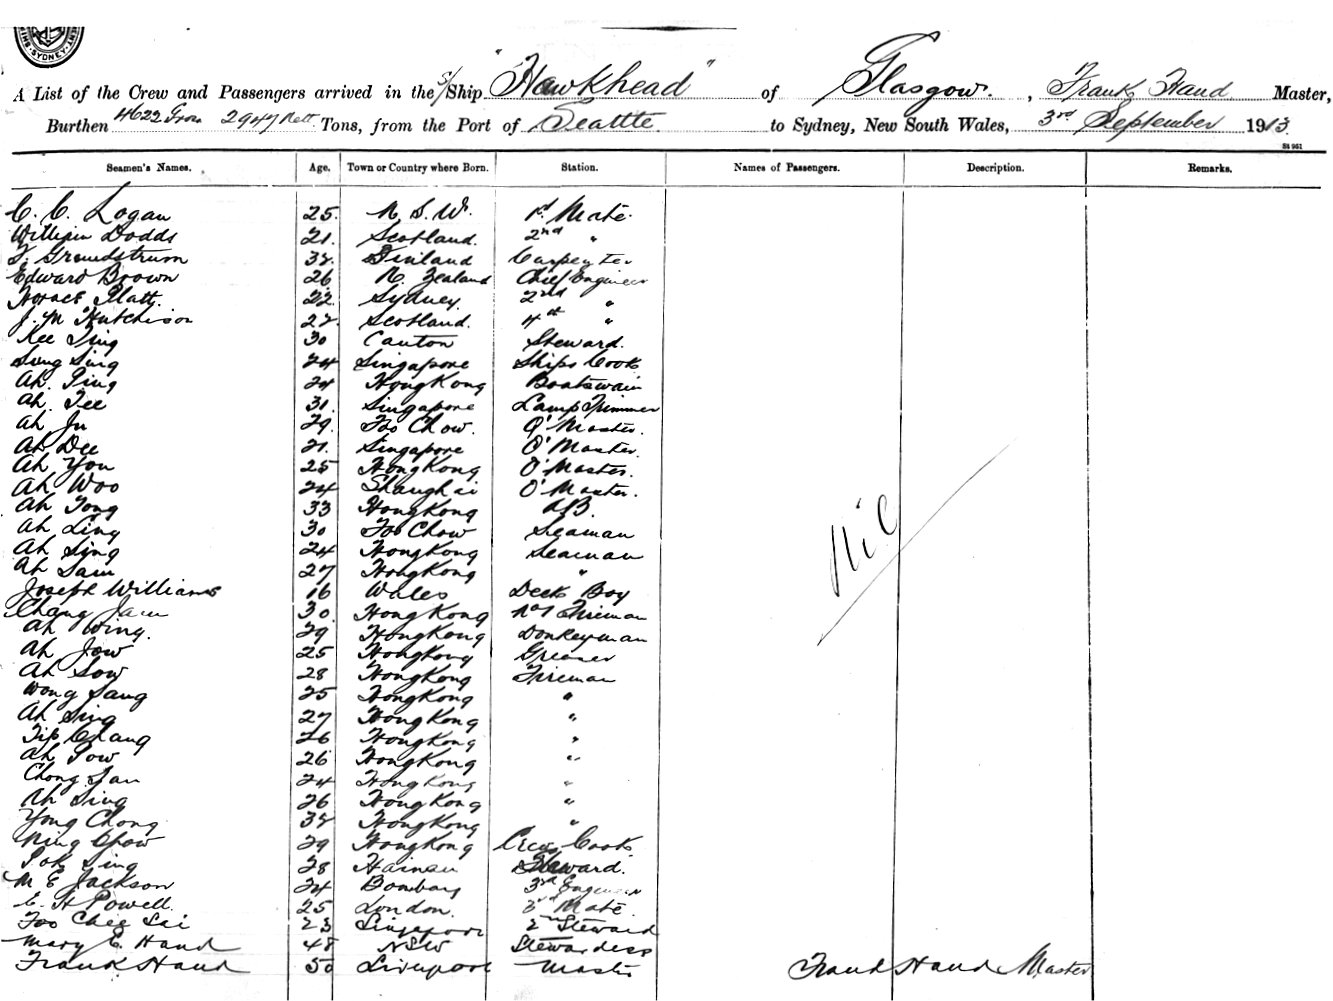 SYDNEY
A List of the Crew and Passengers arrived in the S/Ship "Hawkhead" of Glasgow, Frank Hand Master,
Burthen 4622 Gross 2947 Nett Tons, from the Port of Seattle to Sydney, New South Wales, 3rd September 1913
St 961
Seamen's Names. Age. Town or Country where Born. Station. Names of Passengers. Description. Remarks.
C. C. Logan 25. N. S. W. 1st Mate
William Dodds 21. Scotland. 2nd "
Finland Carpenter
Edward Brown 26 N. Zealand Chief Engineer
Horace Platt. 22 Sydney. 2nd "
J. M Hutchison 27. Scotland. 4th "
Kee Ting 30 Canton Steward.
Sung Sing 24 Singapore Ships Cook
Ah. Ping 24 HongKong Boatswain
Ah. Tee 31. Singapore Lamp Trimmer
Ah Ju 29. Foo Chow. Q'Master.
Ah Dee 21. Singapore Q'Master.
Ah You 25 HongKong Q'Master.
Ah Woo 24 Shanghai Q'Master.
Ah Tong 33 HongKong AB.
Ah Ling 30 Foo Chow Seaman
Ah Sing 24 HongKong Seaman
Ah Sam 27 HongKong "
Joseph Williams 16 Wales Deck Boy
Chang 30. HongKong No 1 Fireman
Ah Wing. 29 HongKong Donkeyman
Ah Jow 25 HongKong Greaser
Ah Sow 28 HongKong Fireman
Wong Sang 25 HongKong "
Ah Sing 27 HongKong "
Tip Chang 26 HongKong "
Ah Pow 26 HongKong "
Chong San 24 HongKong "
Ah Sing 26 HongKong "
Yong Chong 38 HongKong "
Ning Chow 29 HongKong Crew Cook
Sing 28 Hainan Steward.
M E Jackson 24 Bombay 3rd Engineer
C. H Powell. 25 London. 3rd Mate
Foo Chee Sai 23 Singapore 2nd Steward
Mary E. Hand 48 NSW Stewardess
Frank Hand 50 Liverpool Master
Nil
Frank Hand Master